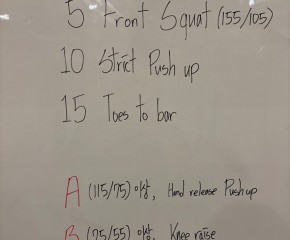 5 Front Squat (155/105)
10 Strict Push up
15 Toes to bar
A (115/75) 이상, Hand release Push up
B (75/55) 이상, Knee raise